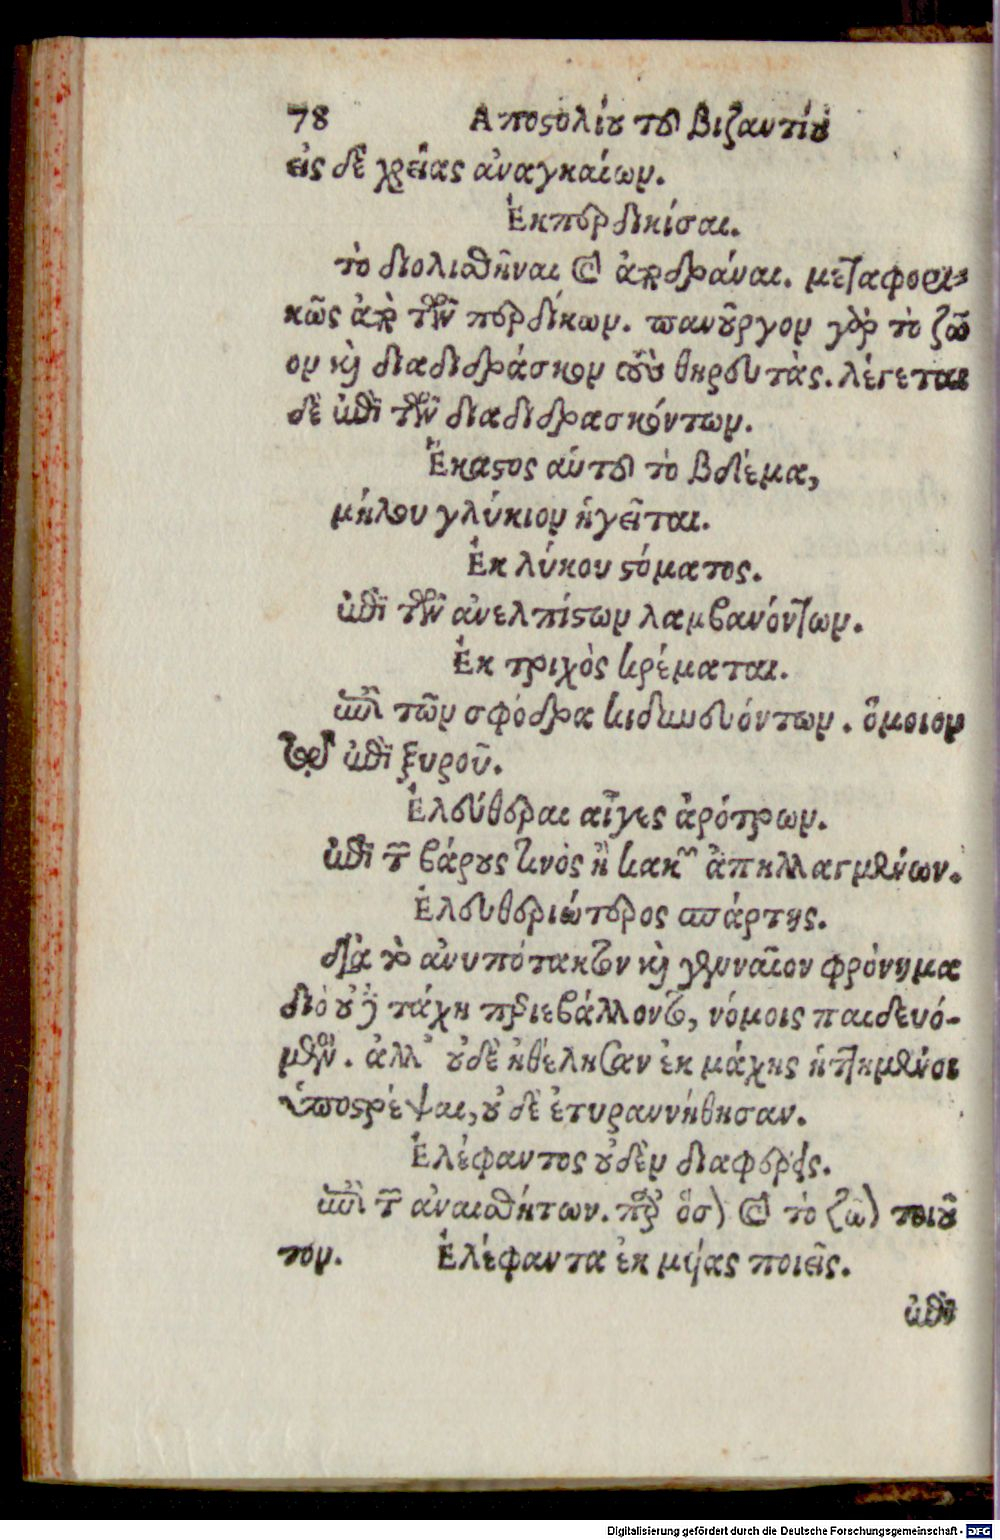 78 Ἀποστολίου τοῦ Βιζαντίου
εἰς δὲ χρείας ἀναγκαίων.
Ἐκπερδικίσαι.
τὸ διολισθῆναι καὶ ἀποδρᾶναι. μεταφορι-
κῶς ἀπὸ τῶν περδίκων. πανοῦργον γὰρ τὸ ζῶ
ον καὶ διαδιδράσκον τοὺς θηρευτάς. λέγεται
δὲ ἐπὶ τῶν διαδιδρασκόντων.
Ἕκαστος αὑτοῦ τὸ βδέμα,
μήλου γλύκιον ἡγεῖται.
Ἐκ λύκου στόματος.
ἐπὶ τῶν ἀνελπίστων λαμβανόντων.
Ἐκ τριχὸς κρέμαται.
ἐπὶ τῶν σφόδρα κινδυνευόντων. ὅμοιον
τῷ ἐπὶ ξυροῦ.
Ἐλεύθεραι αἶγες ἀρότρων.
ἐπὶ τῶν βάρους τινὸς ἢ κακῶν ἀπηλλαγμένων.
Ἐλευθεριώτερος σπάρτης.
διὰ τὸ ἀνυπότακτον καὶ γενναῖον φρόνημα
διὸ οὐ τείχη περιεβάλλοντο, νόμοις παιδευό-
μενοι. ἀλλ' οὐδὲ ἠθέλησαν ἐκ μάχης ἡττημένοι
ὑποστρέψαι, οὐδὲ ἐτυραννήθησαν.
Ἐλέφαντος οὐδὲν διαφέρεις.
ἐπὶ τῶν ἀναισθήτων. παρόσον καὶ τὸ ζῶον τοιοῦ
τον. Ἐλέφαντα ἐκ μυίας ποιεῖς.
ἐπὶ
Digitalisierung gefördert durch die Deutsche Forschungsgemeinschaft - DFG